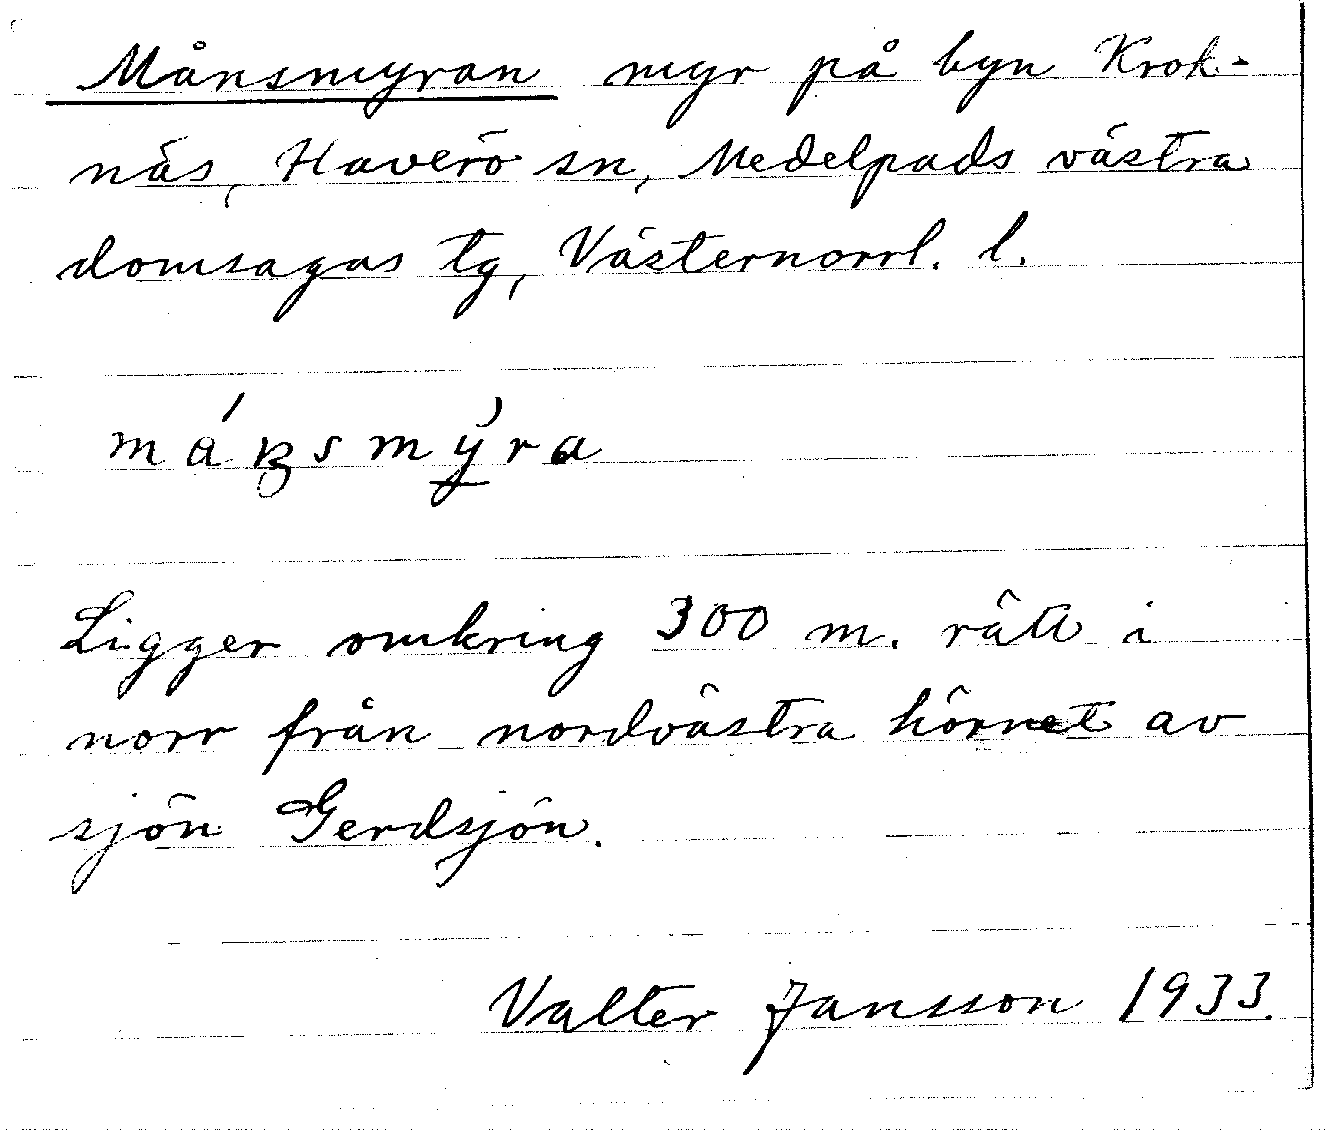 Månsmyran myr på byn Krok-
näs, Haverö sn, Medelpads västra
domsagas tg, Västernorrl. l.
Ligger omkring 300 m. rätt i
norr från nordvästra hörnet av
sjön Gerdsjön.
Valter Jansson 1933.